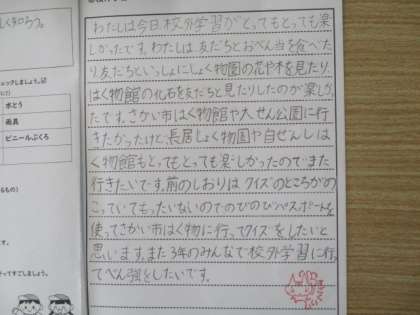 しくすごろう。
チェックしましょう。☑
水とう
雨具
ビニールぶくろ
るもの）
すごしましょう。
わたしは今日校外学習がとってもとっても楽
しかったです。わたしは友だちとおべん当を食べた
り友だちといっしょにしょく物園の花や木を見たり、
はく物館の化石を友だちと見たりしたのが楽しか
たです。さかい市はく物館や大せん公園に行
きたかったけど、長居しょく物園や自ぜんしは
く物館もとってもとっても楽しかったのでまた
行きたいです。前のしおりはクイズのところがの
こっていてもったいないのでのびのびパスポートを
使ってさかい市はく物に行ってクイズをしたいと
思います。また3年のみんなで校外学習に行っ
てべん強をしたいです。